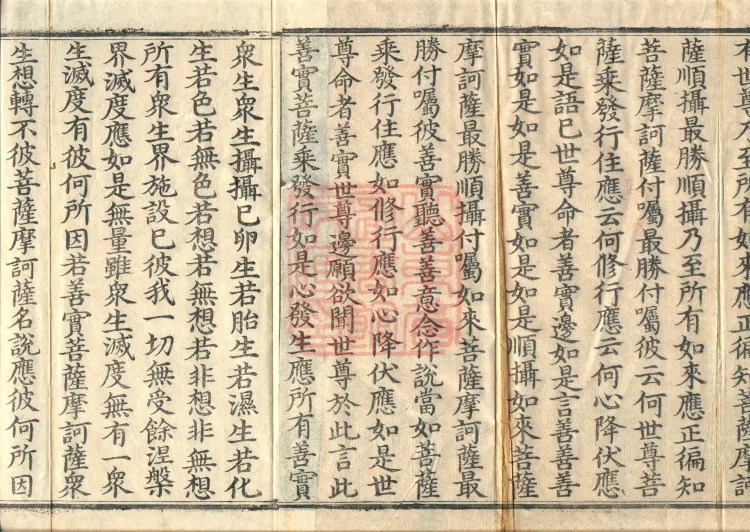 有世尊乃至所有如來應正徧知菩薩摩訶
薩順攝最勝順攝乃至所有如來應正徧知
菩薩摩訶薩付囑最勝付囑彼云何世尊菩
薩乘發行住應云何修行應云何心降伏應
如是語已世尊命者善實邊如是言善善善
實如是如是善實如是如是順攝如來菩薩
摩訶薩最勝順攝付囑如來菩薩摩訶薩最
勝付囑彼善實聽善善意念作說當如菩薩
乘發行住應如修行應如心降伏應如是世
尊命者善實世尊邊願欲聞世尊於此言此
善實菩薩乘發行如是心發生應所有善實
眾生眾生攝攝已卵生若胎生若濕生若化
生若色若無色若想若無想若非想非無想
所有眾生界施設已彼我一切無受餘涅槃
界滅度應如是無量雖眾生滅度無有一眾
生滅度有彼何所因若善實菩薩摩訶薩眾
生想轉不彼菩薩摩訶薩名說應彼何所因